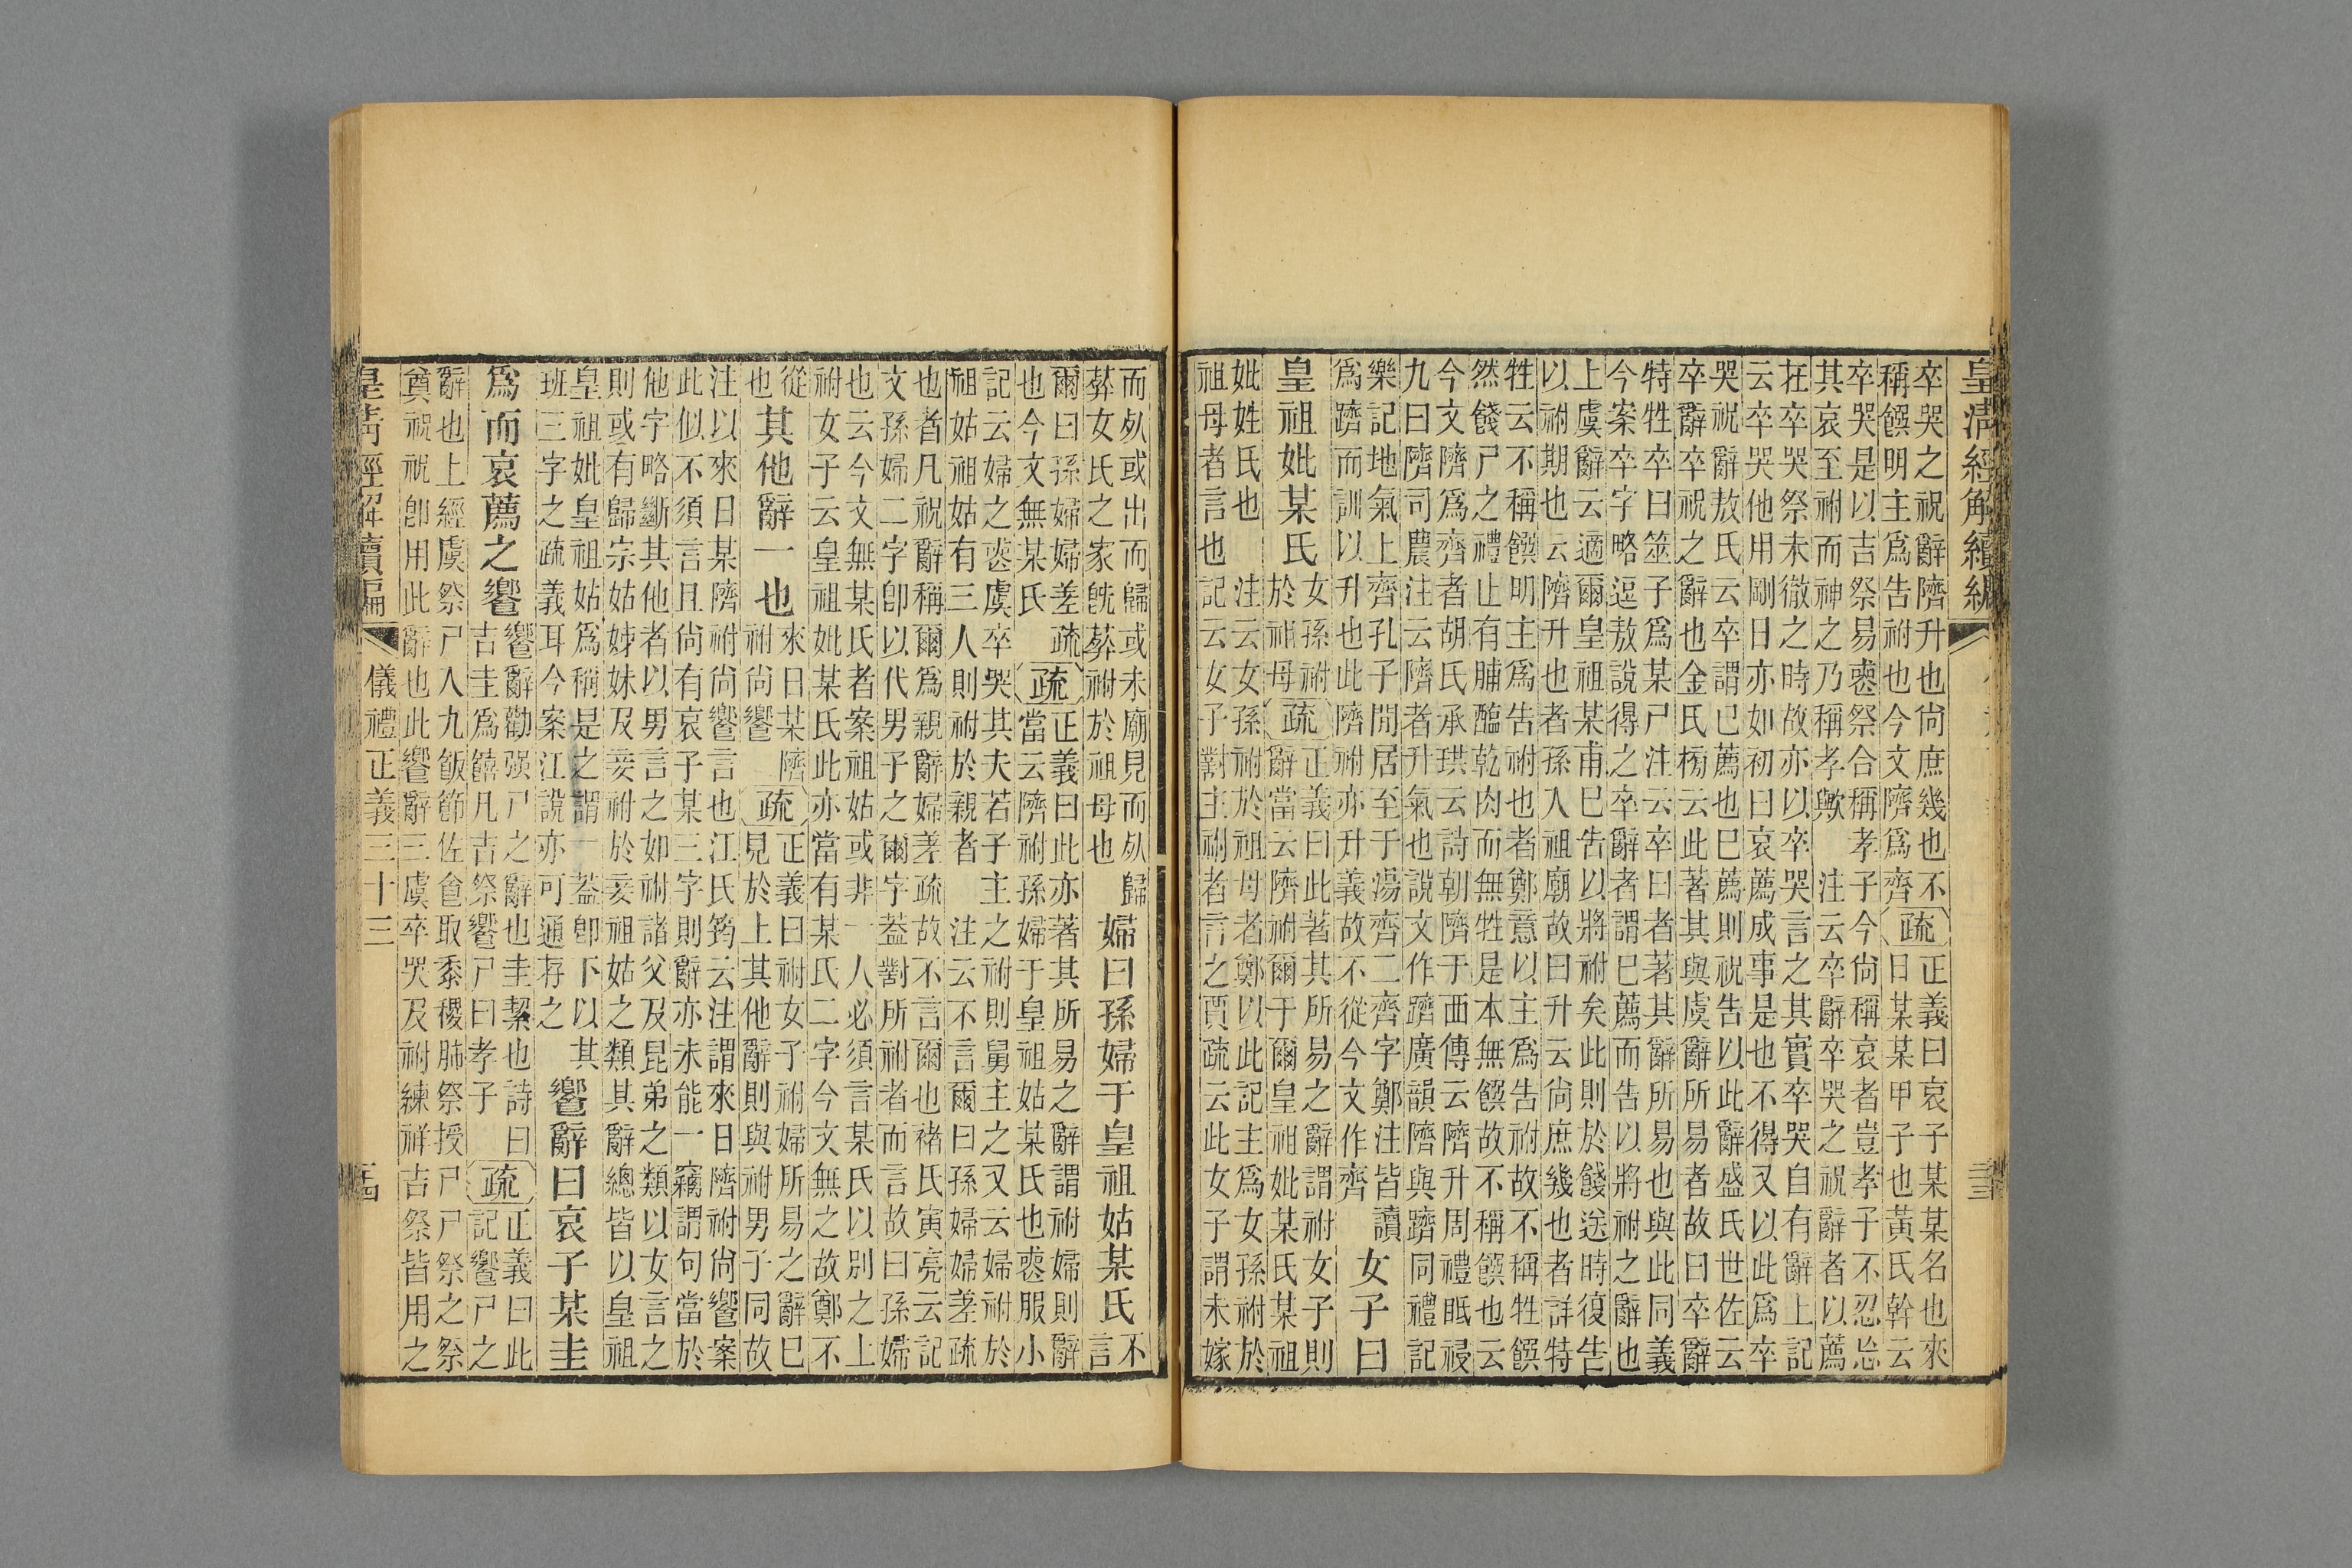 皇清經解續編
卒哭之祝辭隮升也尙庶幾也不
稱饌明主爲告祔也今文隮爲齊
疏
正義曰哀子某某名也來
日某某甲子也黃氏幹云
卒哭是以吉祭易喪祭合稱孝子今尙稱哀者豈孝子不忍忩
其哀至祔而神之乃稱孝歟 注云卒辭卒哭之祝辭者以薦
在卒哭祭未徹之時故亦以卒哭言之其實卒哭自有辭上記
云卒哭他用剛日亦如初曰哀薦成事是也不得又以此爲卒
哭祝辭敖氏云卒謂已薦也巳薦則祝告以此辭盛氏世佐云
卒辭卒祝之辭也金氏榜云此著其與虞辭所易者故曰卒辭
特牲卒曰筮子爲某尸注云卒曰者著其辭所易也與此同義
今案卒字略逗敖說得之卒辭者謂巳薦而告以將祔之辭也
上虞辭云適爾皇祖某甫巳告以將祔矣此則於餞送時復告
以祔期也云隮升也者孫入祖廟故曰升云尙庶幾也者詳特
牲云不稱饌明主爲告祔也者鄭意以主爲告祔故不稱牲饌
然餞尸之禮止有脯醢乾肉而無牲是本無饌故不稱饌也云
今文隮爲齊者胡氏承珙云詩朝隮于西傳云隮升周禮眡祲
九曰隮司農注云隮者升氣也說文作躋廣韻隮與躋同禮記
樂記地氣上齊孔子閒居至于湯齊二齊字鄭注皆讀
爲躋而訓以升也此隮祔亦升義故不從今文作齊
女子曰
皇祖妣某氏
女孫祔
於祖母
疏
正義曰此著其所易之辭謂祔女子則
辭當云隮祔爾于爾皇祖妣某氏某祖
妣姓氏也 注云女孫祔於祖母者鄭以此記主爲女孫祔於
祖母者言也記云女子對主祔者言之賈疏云此女子謂未嫁
而𣦸或出而歸或未廟見而𣦸歸
葬女氏之家旣葬祔於祖母也
婦曰孫婦于皇祖姑某氏
不言
爾曰孫婦婦差疏
也今文無某氏
疏
正義曰此亦著其所易之辭謂祔婦則辭
當云隮祔孫婦于皇祖姑某氏也喪服小
記云婦之喪虞卒哭其夫若子主之祔則舅主之又云婦祔於
祖姑祖姑有三人則祔於親者 注云不言爾曰孫婦婦差疏
也者凡祝辭稱爾爲親辭婦差疏故不言爾也褚氏寅亮云記
文孫婦二字卽以代男子之爾字蓋對所祔者而言故曰孫婦
也云今文無某氏者案祖姑或非一人必須言某氏以別之上
祔女子云皇祖妣某氏此亦當有某氏二字今文無之故鄭不
從
也
其他辭一也
來日某隮
祔尙饗
疏
正義曰祔女子祔婦所易之辭巳
見於上其他辭則與祔男子同故
注以來日某隮祔尙饗言也江氏筠云注謂來日隮祔尙饗案
此似不須言且尙有哀子某三字則辭亦未能一竊謂句當於
他字略斷其他者以男言之如祔諸父及昆弟之類以女言之
則或有歸宗姑姊妹及妾祔於妾祖姑之類其辭總皆以皇祖
皇祖妣皇祖姑爲稱是之謂一蓋卽下以其
班三字之疏義耳今案江說亦可通存之
饗辭曰哀子某圭
爲而哀薦之饗
饗辭勸强尸之辭也圭絜也詩曰
吉圭爲饎凡吉祭饗尸曰孝子
疏
正義曰此
記饗尸之
辭也上經虞祭尸入九飯節佐食取黍稷肺祭授尸尸祭之祭
奠祝祝卽用此辭也此饗辭三虞卒哭及祔練祥吉祭皆用之
皇淸經解續編
儀禮正義三十三